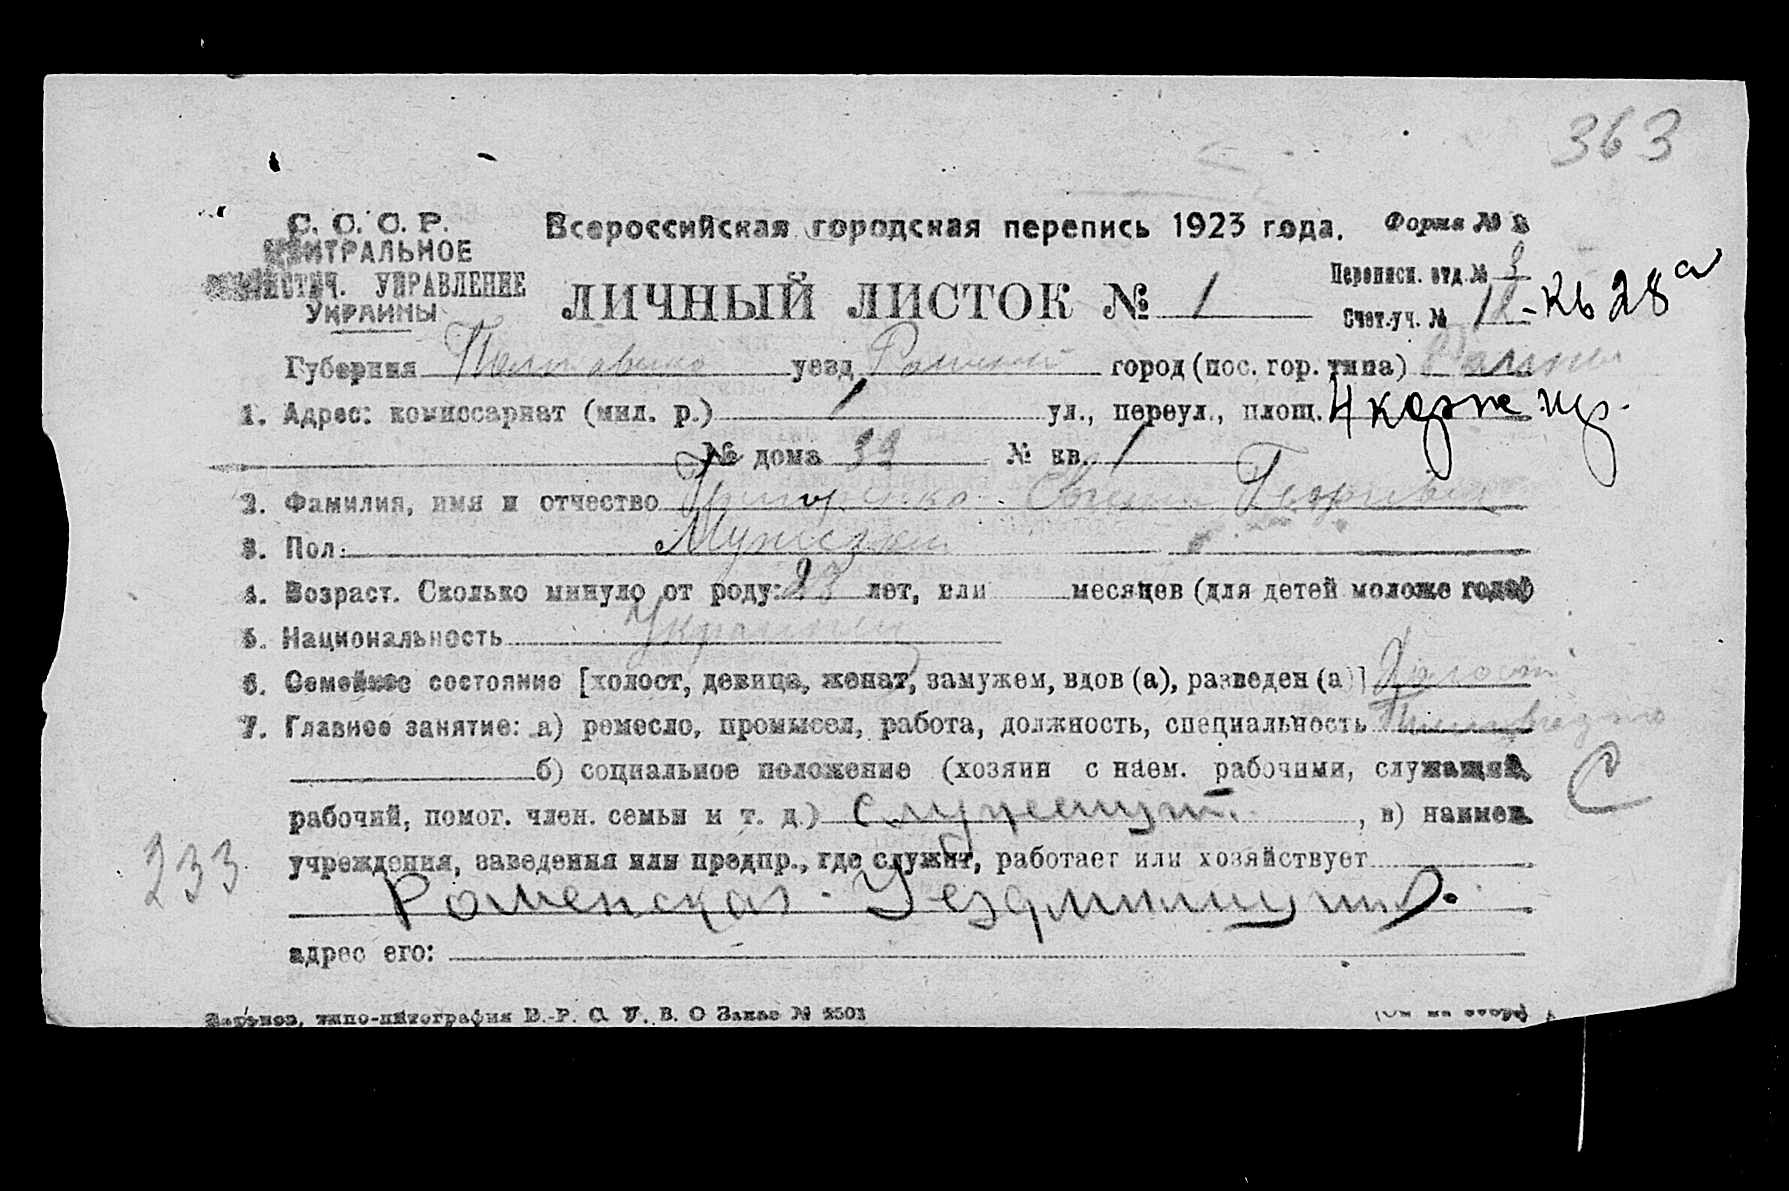 363
С. С. С. Р.
ЦЕНТРАЛЬНОЕ
СТАТИСТИЧ. УПРАВЛЕНИЕ
УКРАИНЫ
Всероссийская городская перепись 1923 года.
Форма №
Переписн. отд. №
ЛИЧНЫЙ ЛИСТОК № 1
Счет. уч. № 12 - Кв 28
Губерния Полтавська уезд Роменский город (пос. гор. типа) Ромны
1. Адрес: комиссариат (мил. р.) ул., переул., площ. 4
№ дома 33 № кв. 1
2. Фамилия, имя и отчество Григоренко Георгиев
3. Пол: Мужской
4. Возраст. Сколько минуло от роду: 23 лет, или месяцев (для детей моложе года)
5. Национальность Украинец
6. Семейное состояние [холост, девица, женат, замужем, вдов (а), разведен (а)] Холост
7. Главное занятие: а) ремесло, промысел, работа, должность, специальность
б) социальное положение (хозяин с наем. рабочими, служащий,
С
рабочий, помог. член. семьи и т. д.) , в) наимен.
233
учреждения, заведения или предпр., где служит, работает или хозяйствует
Роменская
адрес его:
типо-литография № 2501